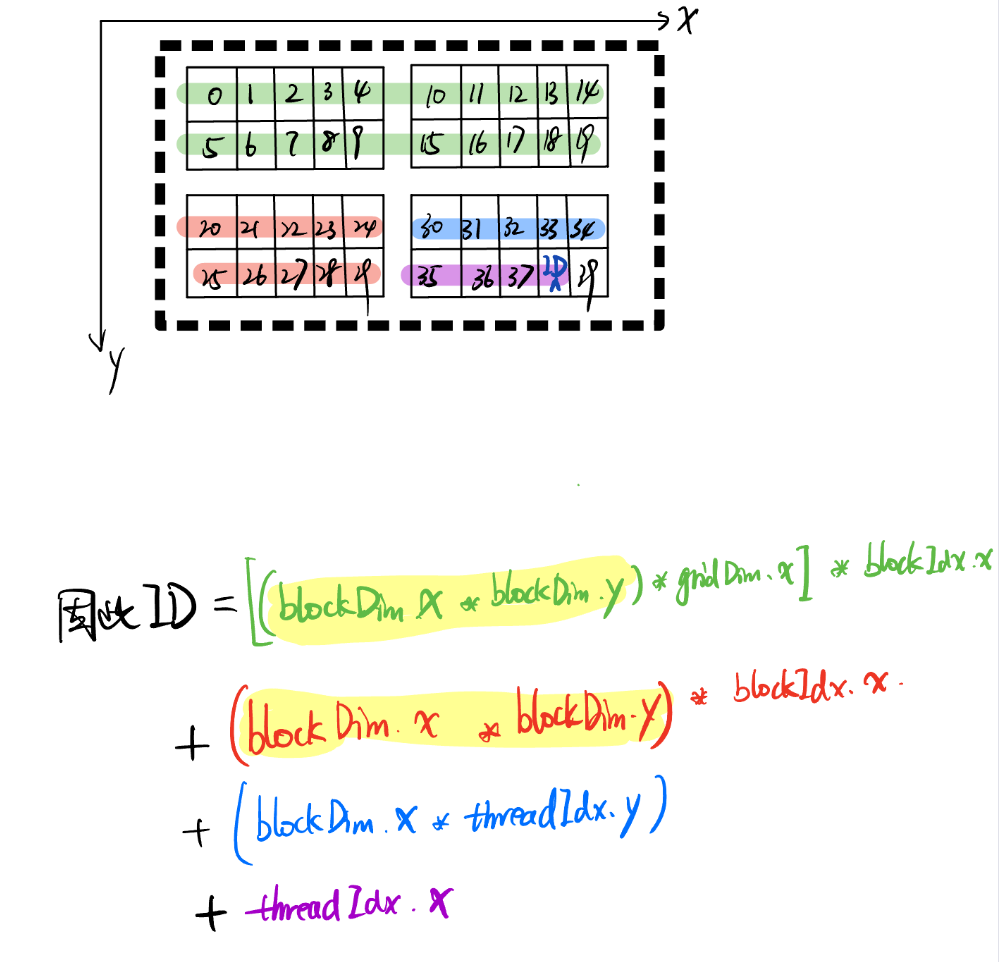 x
0 1 2 3 4 10 11 12 13 14
5 6 7 8 9 15 16 17 18 19
20 21 22 23 24 30 31 32 33 34
25 26 27 28 29 35 36 37 ID 39
y
因此 ID = [(blockDim X * blockDim.y) * gridDim.x] * blockIdx.x
+ (blockDim.x * blockDim.y) * blockIdx.x.
+ (blockDim.x * threadIdx.y)
+ threadIdx.x